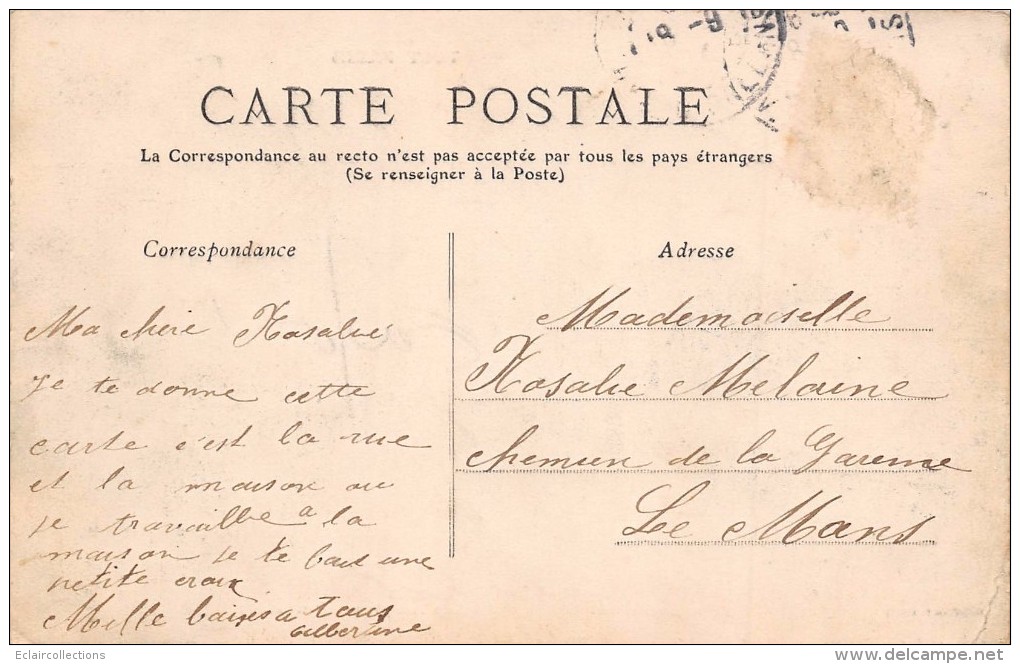 CARTE POSTALE
La Correspondance au recto n'est pas acceptée par tous les pays étrangers
(Se renseigner à la Poste)
Correspondance
Adresse
Ma chere Rosalie
Je te donne cette
carte c'est la rue
et la maison ou
je travaille a la
maison je te fait une
petite croix
Mille baises a tous
Gilbertine
Mademoiselle
Rosalie Melaine
chemin de la Garenne
Le Mans
Eclaircollections
www.delcampe.net